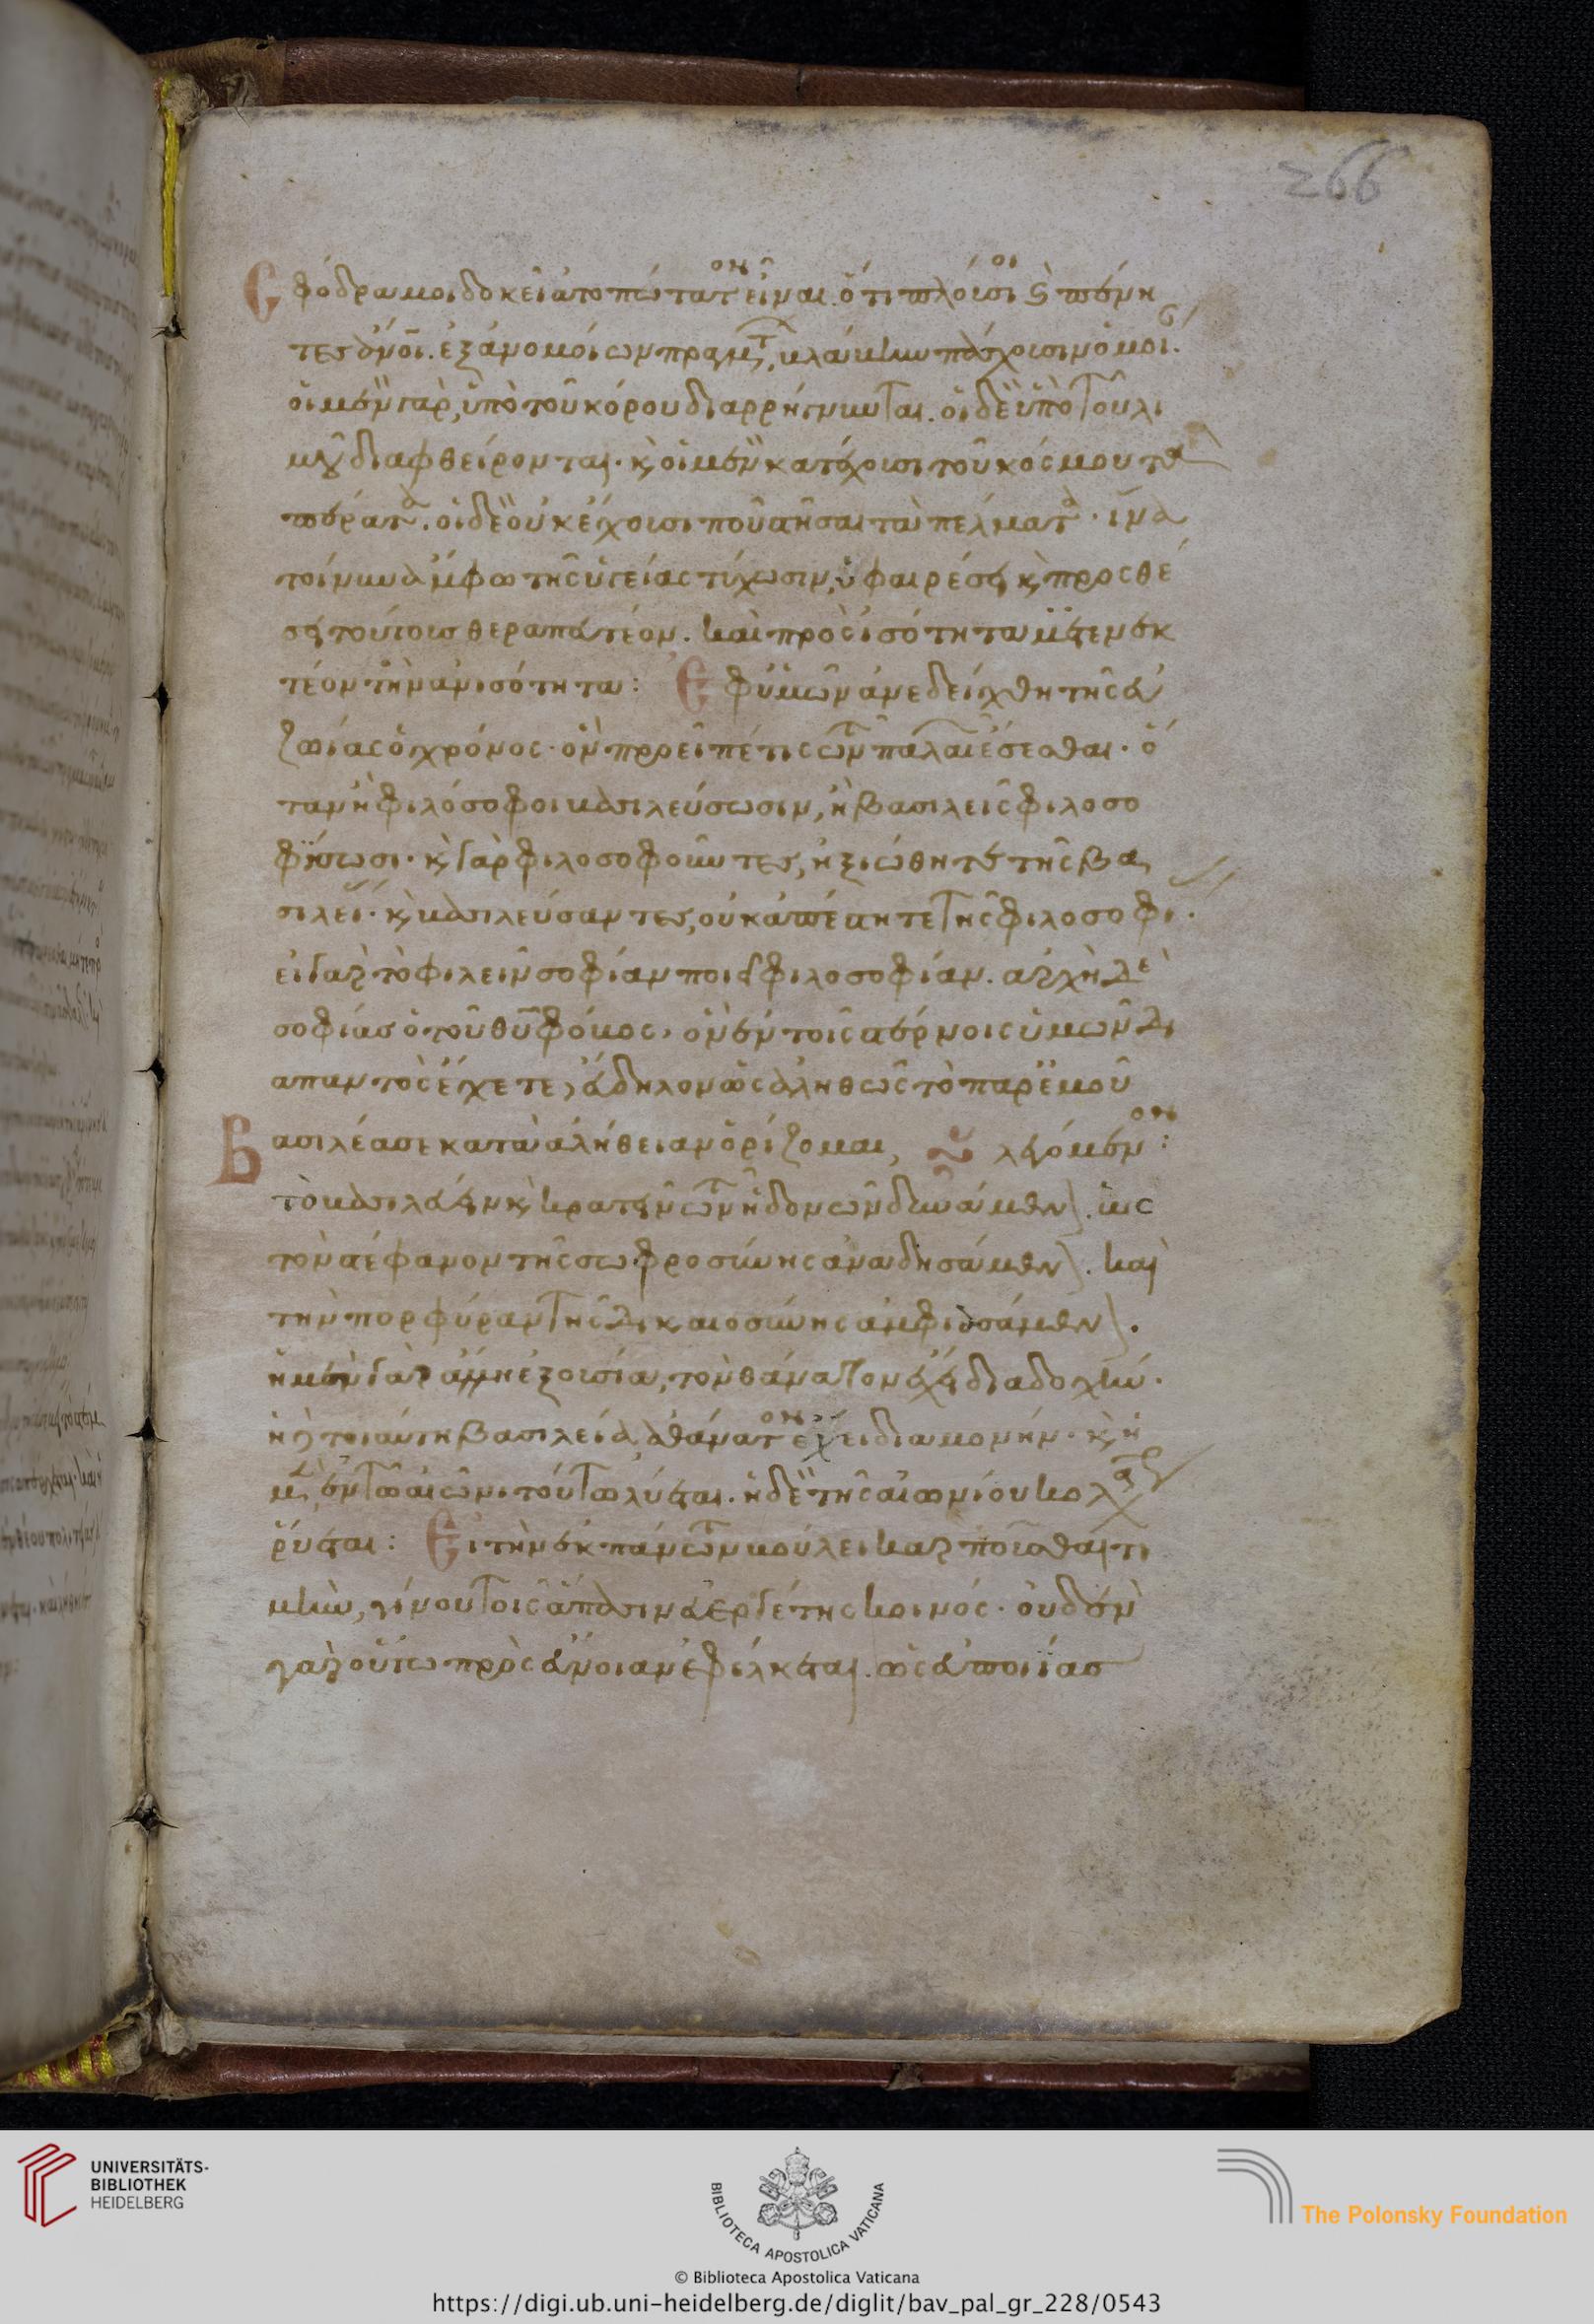 266
Σφόδρα μοι δοκεῖ ἀτοπώτατον εἶναι. ὅτι πλούσιοι καὶ πένη
τες ἄνοι. ἐξ ἀνομοίων πραγμάτων, βλάβην πάσχουσιν ὁμοί.
οἱ μὲν γὰρ, ὑπὸ τοῦ κόρου διαρρήγνυνται. οἱ δὲ ὑπὸ τοῦ λι
μοῦ διαφθείρονται. καὶ οἱ μὲν κατέχουσι τοῦ κόσμου τὰ
πέρατα. οἱ δὲ οὐκ ἔχουσι ποῦ στῆσαι τὰ πέλματα. ἵνα
τοίνυν ἄμφω τῆς ὑγείας τύχωσιν, ὑφαιρέσει καὶ προσθέ
σει τούτοις θεραπευτέον. καὶ πρὸς ἰσότητα μετενεκ
τέον τὴν ἀνισότητα: Ἐφ ὑμῶν ἀνεδείχθη τῆς εὐ
ζωίας ὁ χρόνος. ὃν προεῖπέ τις τῶν παλαιῶν ἔσεσθαι. ὅ
ταν ἢ φιλόσοφοι βασιλεύσωσιν, ἢ βασιλεῖς φιλοσο
φήσωσι. καὶ γὰρ φιλοσοφοῦντες, ἠξιώθητε τῆς βα
σιλεί. καὶ βασιλεύσαντες, οὐκ ἀπέστητε τῆς φιλοσοφι.
εἰ γὰρ τὸ φιλεῖν σοφίαν ποιεῖ φιλοσοφίαν. ἀρχὴ δὲ
σοφίας ὁ τοῦ θυ φόβος, ὃν ἐν τοῖς στέρνοις ὑμῶν δι
απαντὸς ἔχετε, εὔδηλον ὡς ἀληθῶς τὸ παρ ἐμοῦ
λεγόμενον:
Βασιλέα σε κατὰ ἀλήθειαν ὁρίζομαι,
τὸ βασιλεύειν καὶ κρατεῖν τῶν ἡδονῶν δυνάμενον. ὡς
τὸν στέφανον τῆς σωφροσύνης ἀναδησάμενον. καὶ
τὴν πορφύραν τῆς δικαιοσύνης ἀμφιασάμενον.
ἡ μὲν γὰρ ἄλλη ἐξουσία, τὸν θάνατον ἔχει διαδοχήν.
ἡ δὲ τοιαύτη βασιλεία ἀθάνατον ἔχει διαμονήν. καὶ ἡ
μὲν ἐν τῶ αἰῶνι τούτω λύεται. ἡ δὲ τῆς αἰωνίου κολάσεως
ῥύεται: Εἰ τὴν ἐκ πάντων βούλει καρποῦσθαι τι
μὴν, γίνου τοῖς ἅπασιν εὐεργέτης κοινός. οὐδὲν
γὰρ οὕτω πρὸς εὔνοιαν ἐφέλκεται. ὡς εὐποιίας
UNIVERSITÄTS-
BIBLIOTHEK
HEIDELBERG
BIBLIOTECA APOSTOLICA VATICANA
The Polonsky Foundation
© Biblioteca Apostolica Vaticana
https://digi.ub.uni-heidelberg.de/diglit/bav_pal_gr_228/0543